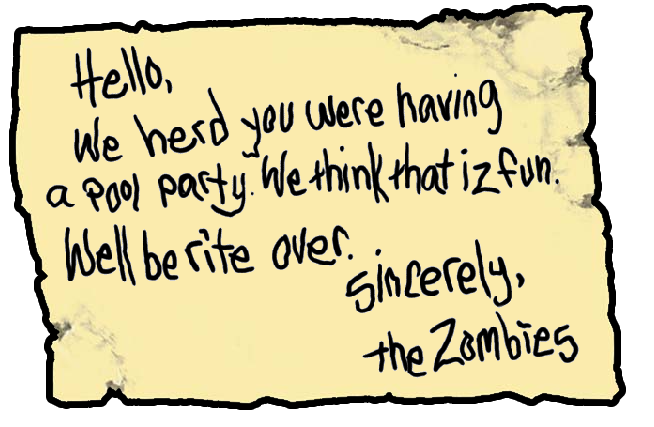 Hello,
We herd you were having
a pool party. We think that iz fun.
Well be rite over.
Sincerely,
the Zombies